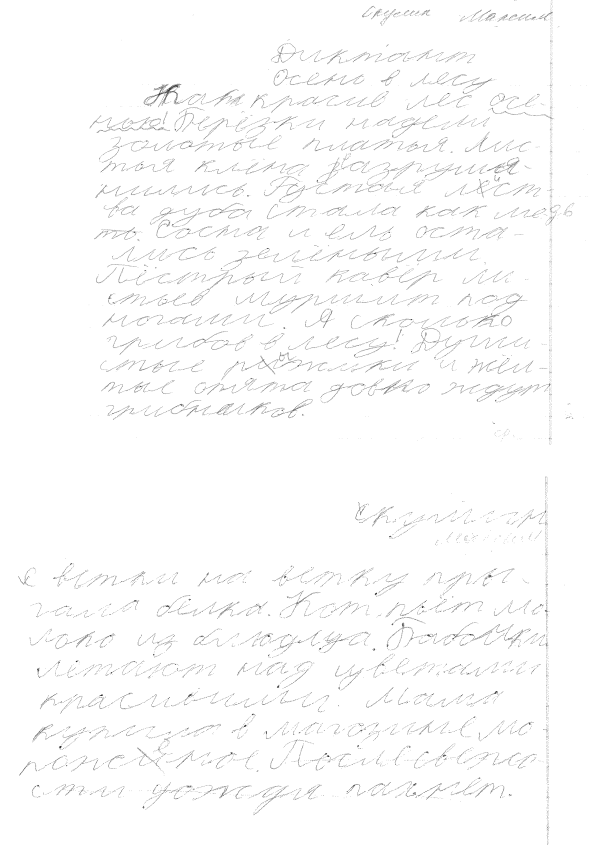 Скулин Максим
Диктант
Осень в лесу
Как красив лес осе-
нью! Берёзки надели
золотые платья. Лис-
тья клёна разрумя-
нились. Густая лист-
ва дуба стала как медь
Сосна и ель оста-
лись зелёными.
Пёстрый кавёр ли-
стьев муршит под
ногами. А сколько
грибов в лесу! Души-
стые рыжики и жёл-
тые опята довно ждут
грибников.
Максим
с ветки на ветку пры-
гала белка. Кот пьёт мо-
локо из блюдца. Бабочки
летают над цветами
красивыми. Мама
купила в магозине мо-
роженое. После свежо-
сти дождя пахнет.